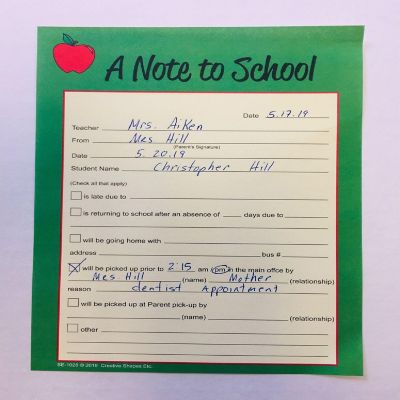 A Note to School
Date 5.17.19
Teacher Mrs. Aiken
From Mrs Hill
(Parent's Signature)
Date 5.20.19
Student Name Christopher Hill
(Check all that apply)
is late due to
is returning to school after an absence of ____ days due to
will be going home with
address bus #
will be picked up prior to 2:15 am pm in the main office by
Mrs Hill (name) Mother (relationship)
reason dentist Appointment
will be picked up at Parent pick-up by
(name) (relationship)
other
SE-1025 © 2016 Creative Shapes Etc.